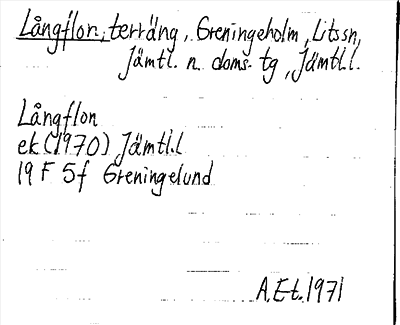 Långflon, terräng, Greningeholm, Litssn,
Jämtl. n. doms. tg, Jämtl.l.
Långflon
ek (1970) Jämtl.l
19 F 5f Greningelund
A.Et.1971